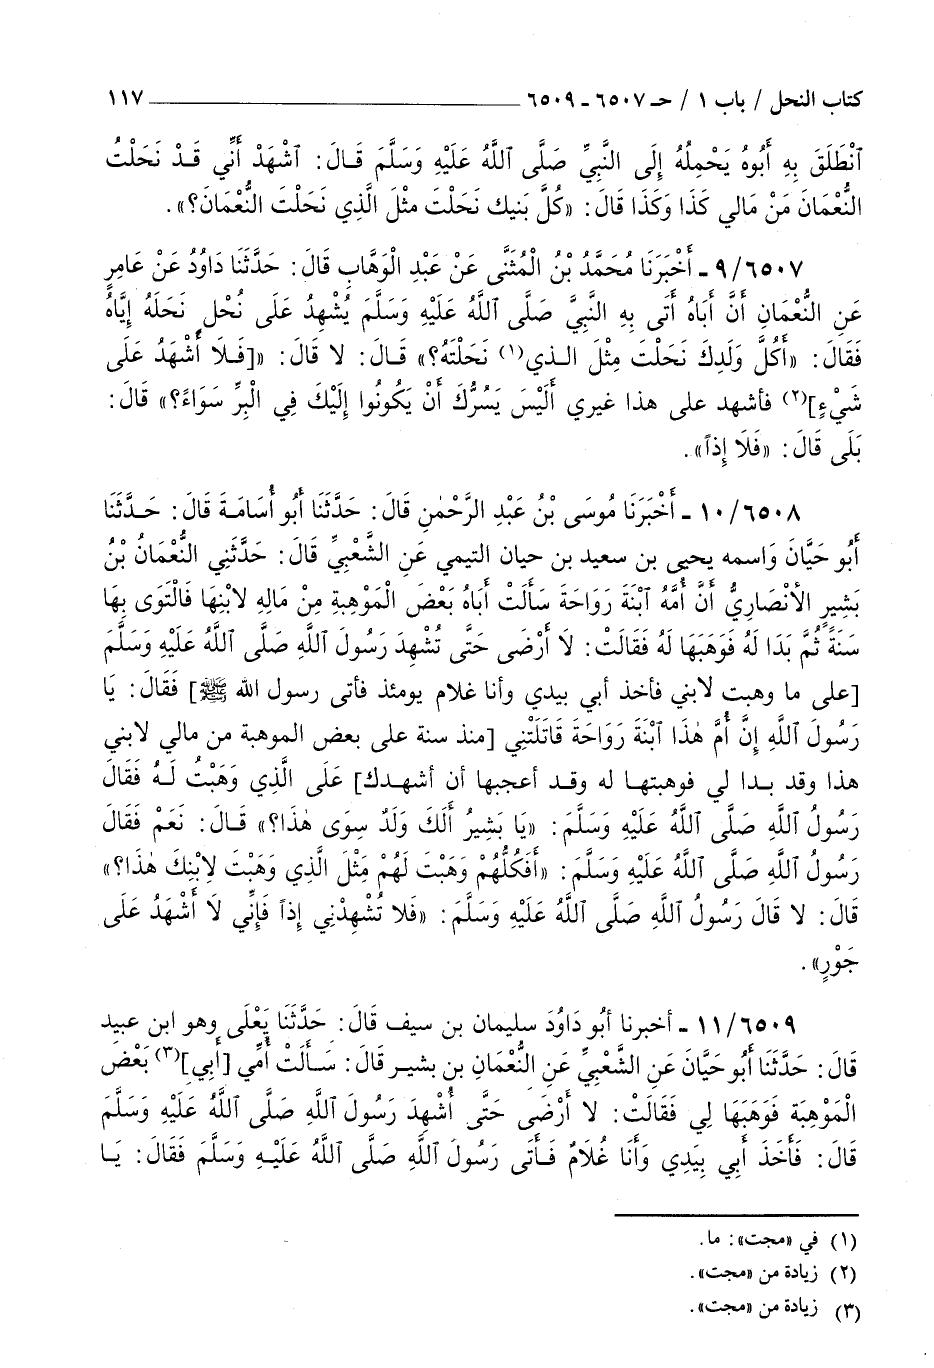 كتاب النحل / باب ١ / حـ ٦٥٠٧ ـ ٦٥٠٩ ــــــــــ ١١٧
ٱنْطَلَقَ بِهِ أَبُوهُ يَحْمِلُهُ إِلَى النَّبِيِّ صَلَّى ٱللَّهُ عَلَيْهِ وَسَلَّمَ قَالَ: ٱشْهَدْ أَنِّي قَدْ نَحَلْتُ
النُّعْمَانَ مَنْ مَالي كَذَا وَكَذَا قالَ: «كُلَّ بَنيك نَحَلْتَ مثْلَ الَّذِي نَحَلْتَ النُّعْمَانَ؟».
٩/٦٥٠٧ ـ أَخْبَرَنَا مُحَمَّدُ بْنُ الْمُثَنَّى عَنْ عَبْدِ الْوَهَّابِ قَالَ: حَدَّثَنَا دَاوُدُ عَنْ عَامِرٍ
عَنِ النُّعْمَانِ أَنَّ أَبَاهُ أَتَى بِهِ النَّبِيَّ صَلَّى ٱللَّهُ عَلَيْهِ وَسَلَّمَ يُشْهِدُ عَلَى نُحْلٍ نَحَلَهُ إِيَّاهُ
فَقَالَ: «أَكُلَّ وَلَدِكَ نَحَلْتَ مِثْلَ الـذي(١) نَحَلْتَهُ؟» قَـالَ: لا قَالَ: «[فَـلَا أَشْهَدُ عَلَى
شَيْءٍ](٢) فأشهد على هذا غيري أَلَيْسَ يَسُرُّكَ أَنْ يَكُونُوا إِلَيْكَ فِي الْبِرِّ سَوَاءً؟» قَالَ:
بَلَى قَالَ: «فَلَا إِذاً».
١٠/٦٥٠٨ ـ أَخْبَرَنَا مُوسَى بْنُ عَبْدِ الرَّحْمٰنِ قَالَ: حَدَّثَنَا أَبُو أُسَامَـةَ قَالَ: حَـدَّثَنَا
أَبُو حَيَّانَ وَاسمه يحيى بن سعيد بن حيان التيمي عَنِ الشَّعْبِيِّ قَالَ: حَدَّثَنِي النُّعْمَانُ بْنُ
بَشِيرٍ الأَنْصَارِيُّ أَنَّ أُمَّهُ ٱبْنَةَ رَوَاحَةَ سَأَلَتْ أَبَاهُ بَعْضَ الْمَوْهِبَةِ مِنْ مَالِهِ لابْنِهَا فَالْتَوَى بِهَا
سَنَةً ثُمَّ بَدَا لَهُ فَوَهَبَهَا لَهُ فَقَالَتْ: لَا أَرْضَى حَتَّى تُشْهِدَ رَسُولَ ٱللَّهِ صَلَّى ٱللَّهُ عَلَيْهِ وَسَلَّمَ
[على ما وهبت لابني فأخذ أبي بيدي وأنا غلام يومئذ فأتى رسول الله ﷺ] فَقَالَ: يَا
رَسُولَ ٱللَّهِ إِنَّ أُمَّ هٰذَا ٱبْنَةَ رَوَاحَةَ قَاتَلَتْنِي [منذ سنة على بعض الموهبة من مالي لابني
هذا وقد بـدا لي فوهبتهـا له وقـد أعجبها أن أشهـدك] عَلَى الَّذِي وَهَبْتُ لَـهُ فَقَالَ
رَسُولُ ٱللَّهِ صَلَّى ٱللَّهُ عَلَيْهِ وَسَلَّمَ: «يَا بَشِيرُ أَلَكَ وَلَدٌ سِوَى هٰذَا؟» قَـالَ: نَعَمْ فَقَالَ
رَسُولُ ٱللَّهِ صَلَّى ٱللَّهُ عَلَيْهِ وَسَلَّمَ: «أَفَكُلُّهُمْ وَهَبْتَ لَهُمْ مِثْلَ الَّذِي وَهَبْتَ لِابْنِكَ هٰذَا؟»
قَالَ: لا قَالَ رَسُولُ ٱللَّهِ صَلَّى ٱللَّهُ عَلَيْهِ وَسَلَّمَ: «فَلا تُشْهِدْنِي إِذاً فَإِنِّي لَا أَشْهَدُ عَلَى
جَوْرٍ».
١١/٦٥٠٩ ـ أخبرنا أَبُو دَاوُدَ سليمان بن سيف قَالَ: حَدَّثَنَا يَعْلَى وهو ابن عبيد
قَالَ: حَدَّثَنَا أَبُو حَيَّانَ عَنِ الشَّعْبِيِّ عَنِ النُّعْمَانِ بن بشيـر قَالَ: سَـأَلَتْ أُمِّي [أَبِي](٣) بَعْضَ
الْمَوْهِبَةِ فَوَهَبَهَا لِي فَقَالَتْ: لا أَرْضَى حَتَّى أُشْهِدَ رَسُولَ ٱللَّهِ صَلَّى ٱللَّهُ عَلَيْهِ وَسَلَّمَ
قَالَ: فَأَخَذَ أَبِي بِيَدِي وَأَنَا غُلَامٌ فَـأَتَى رَسُولَ ٱللَّهِ صَلَّى ٱللَّهُ عَلَيْـهِ وَسَلَّمَ فَقَالَ: يَـا
(١) في «مجت»: ما.
(٢) زيادة من «مجت».
(٣) زيادة من «مجت».